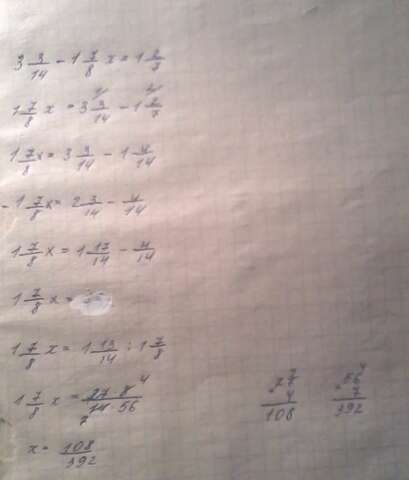 3 3/14 - 1 7/8 x = 1 2/7
1 7/8 x = 3 3/14 - 1 2/7
1 7/8 x = 3 3/14 - 1 4/14
- 1 7/8 x = 2 3/14 - 4/14
1 7/8 x = 1 17/14 - 4/14
1 7/8 x =
1 7/8 x = 1 13/14 : 1 7/8
1 7/8 x = 27 · 8 4 / 14 · 56 7
x = 108/392
27
4
108
56 4
7
392